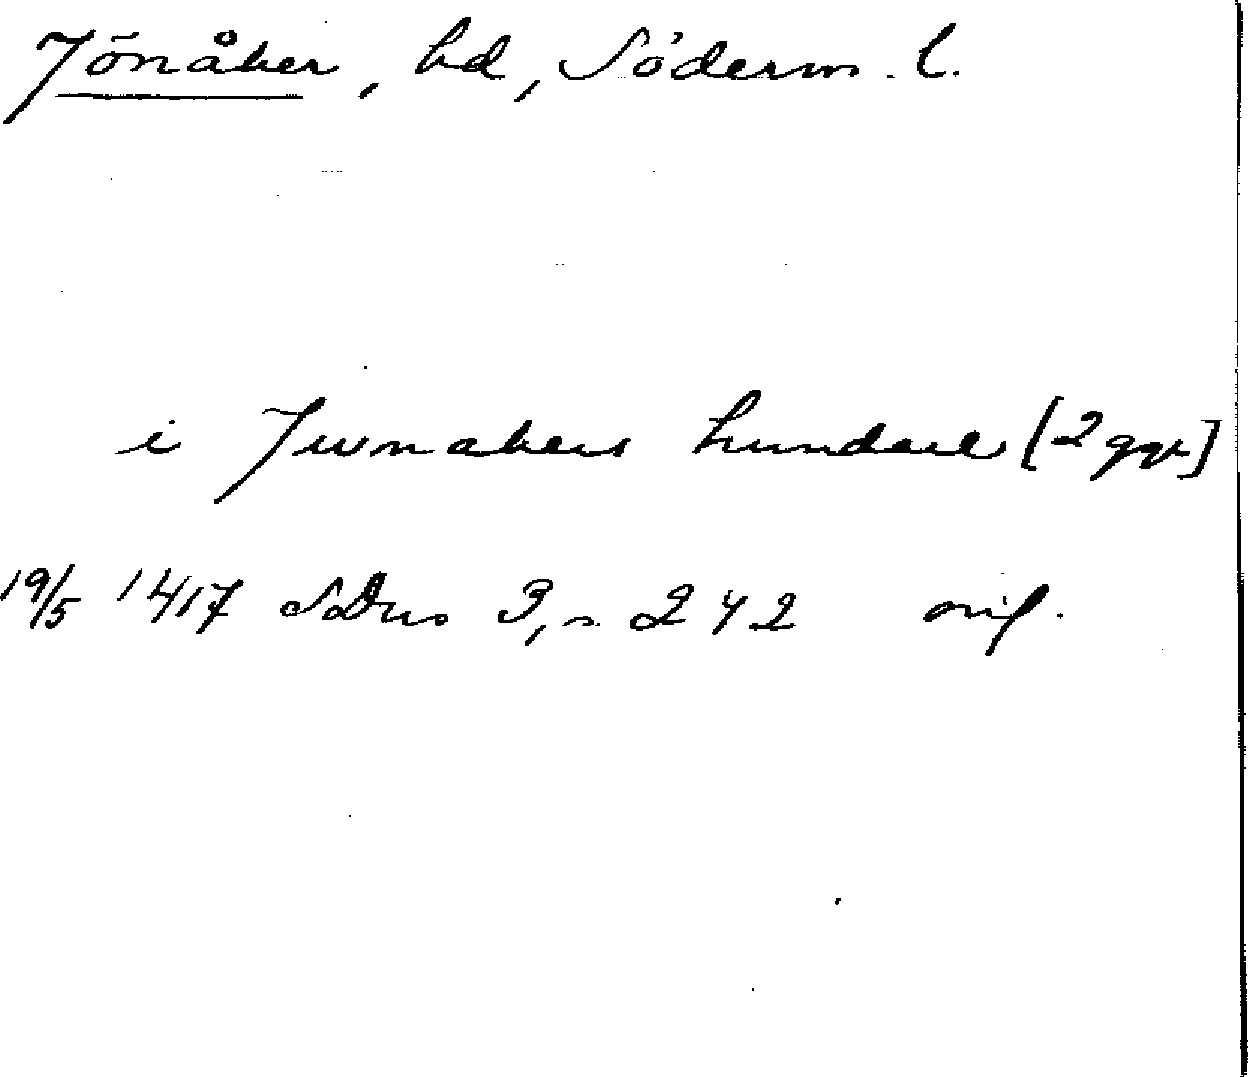 Jönåker, hd, Söderm. l.
i Jwnakers hundare [2 ggr]
19/5 1417 SDns 3, s. 242 orig.